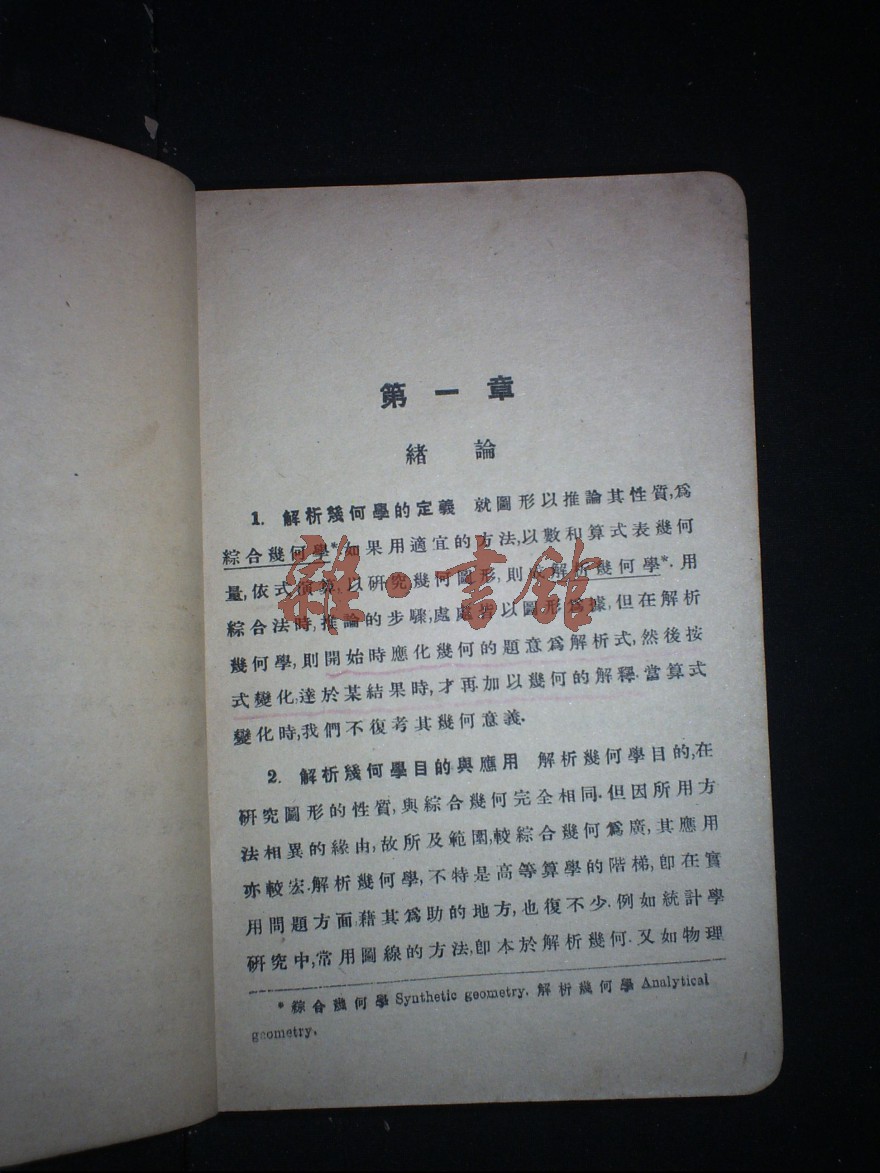 第一章
緒論
1. 解析幾何學的定義 就圖形以推論其性質,爲
綜合幾何學*.如果用適宜的方法,以數和算式表幾何
量,依式演算,以研究幾何圖形,則爲解析幾何學*.用
綜合法時,推論的步驟,處處皆以圖形爲據,但在解析
幾何學,則開始時應化幾何的題意爲解析式,然後按
式變化,達於某結果時,才再加以幾何的解釋.當算式
變化時,我們不復考其幾何意義.
2. 解析幾何學目的與應用 解析幾何學目的,在
研究圖形的性質,與綜合幾何完全相同.但因所用方
法相異的緣由,故所及範圍,較綜合幾何爲廣,其應用
亦較宏.解析幾何學,不特是高等算學的階梯,卽在實
用問題方面,藉其爲助的地方,也復不少.例如統計學
研究中,常用圖線的方法,卽本於解析幾何.又如物理
*綜合幾何學 Synthetic geometry. 解析幾何學 Analytical
geometry.
雜·書館